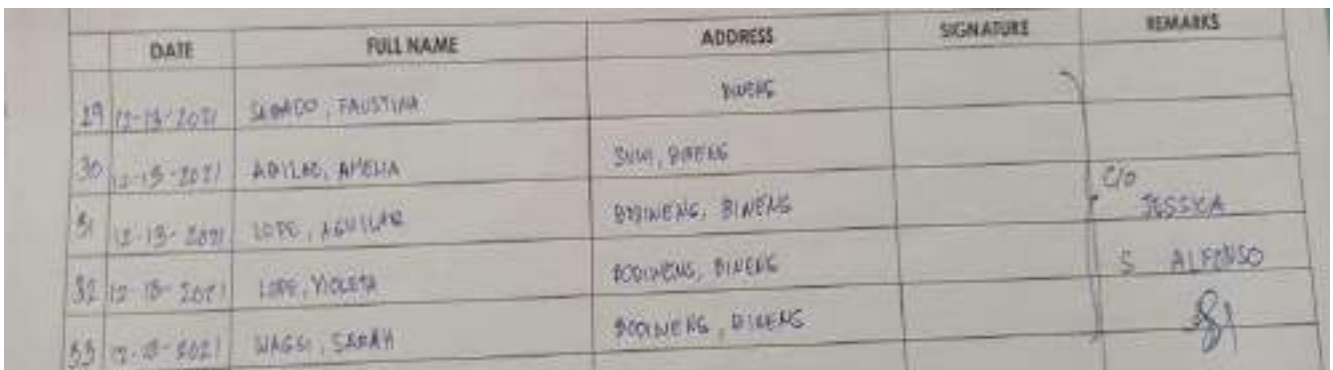 DATE FULL NAME ADDRESS SIGNATURE REMARKS
29 12-13-2021 FAUSTINA BINENG
30 12-13-2021 ABILAO, AMELIA BINENG
31 12-13-2021 LOPE, AGUILAR BODINENG, BINENG C/O JESSICA
32 12-13-2021 LOPE, VIOLETA BODINENG, BINENG S ALFONSO
33 12-13-2021 WAGSI, SARAH BODINENG, BINENG